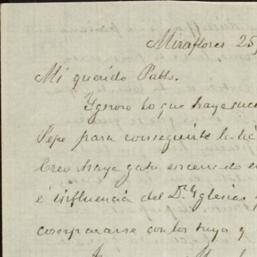 Miraflores 25,
Mi querido Pablo.
Ygnoro lo que haya suce
Pepe para conseguirte la li
Creo haya gato encerrado e
é influencia del Dr Yglesias
compararse con los tuyo y